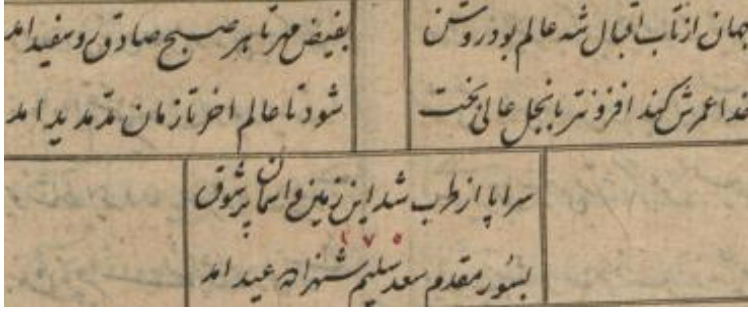 جهان از تاب اقبال شه عالم بود روشن
بفیض مهر تا هر صبح صادق رو سفید امد
خدا عمرش کند افزونتر با نجل عالی بخت
شود تا عالم اخر تا زمان مدّ مدید امد
سراپا از طرب شد این زمین و اسمان پرشوق
بسور مقدم سعد سلیم شهزاده عید امد